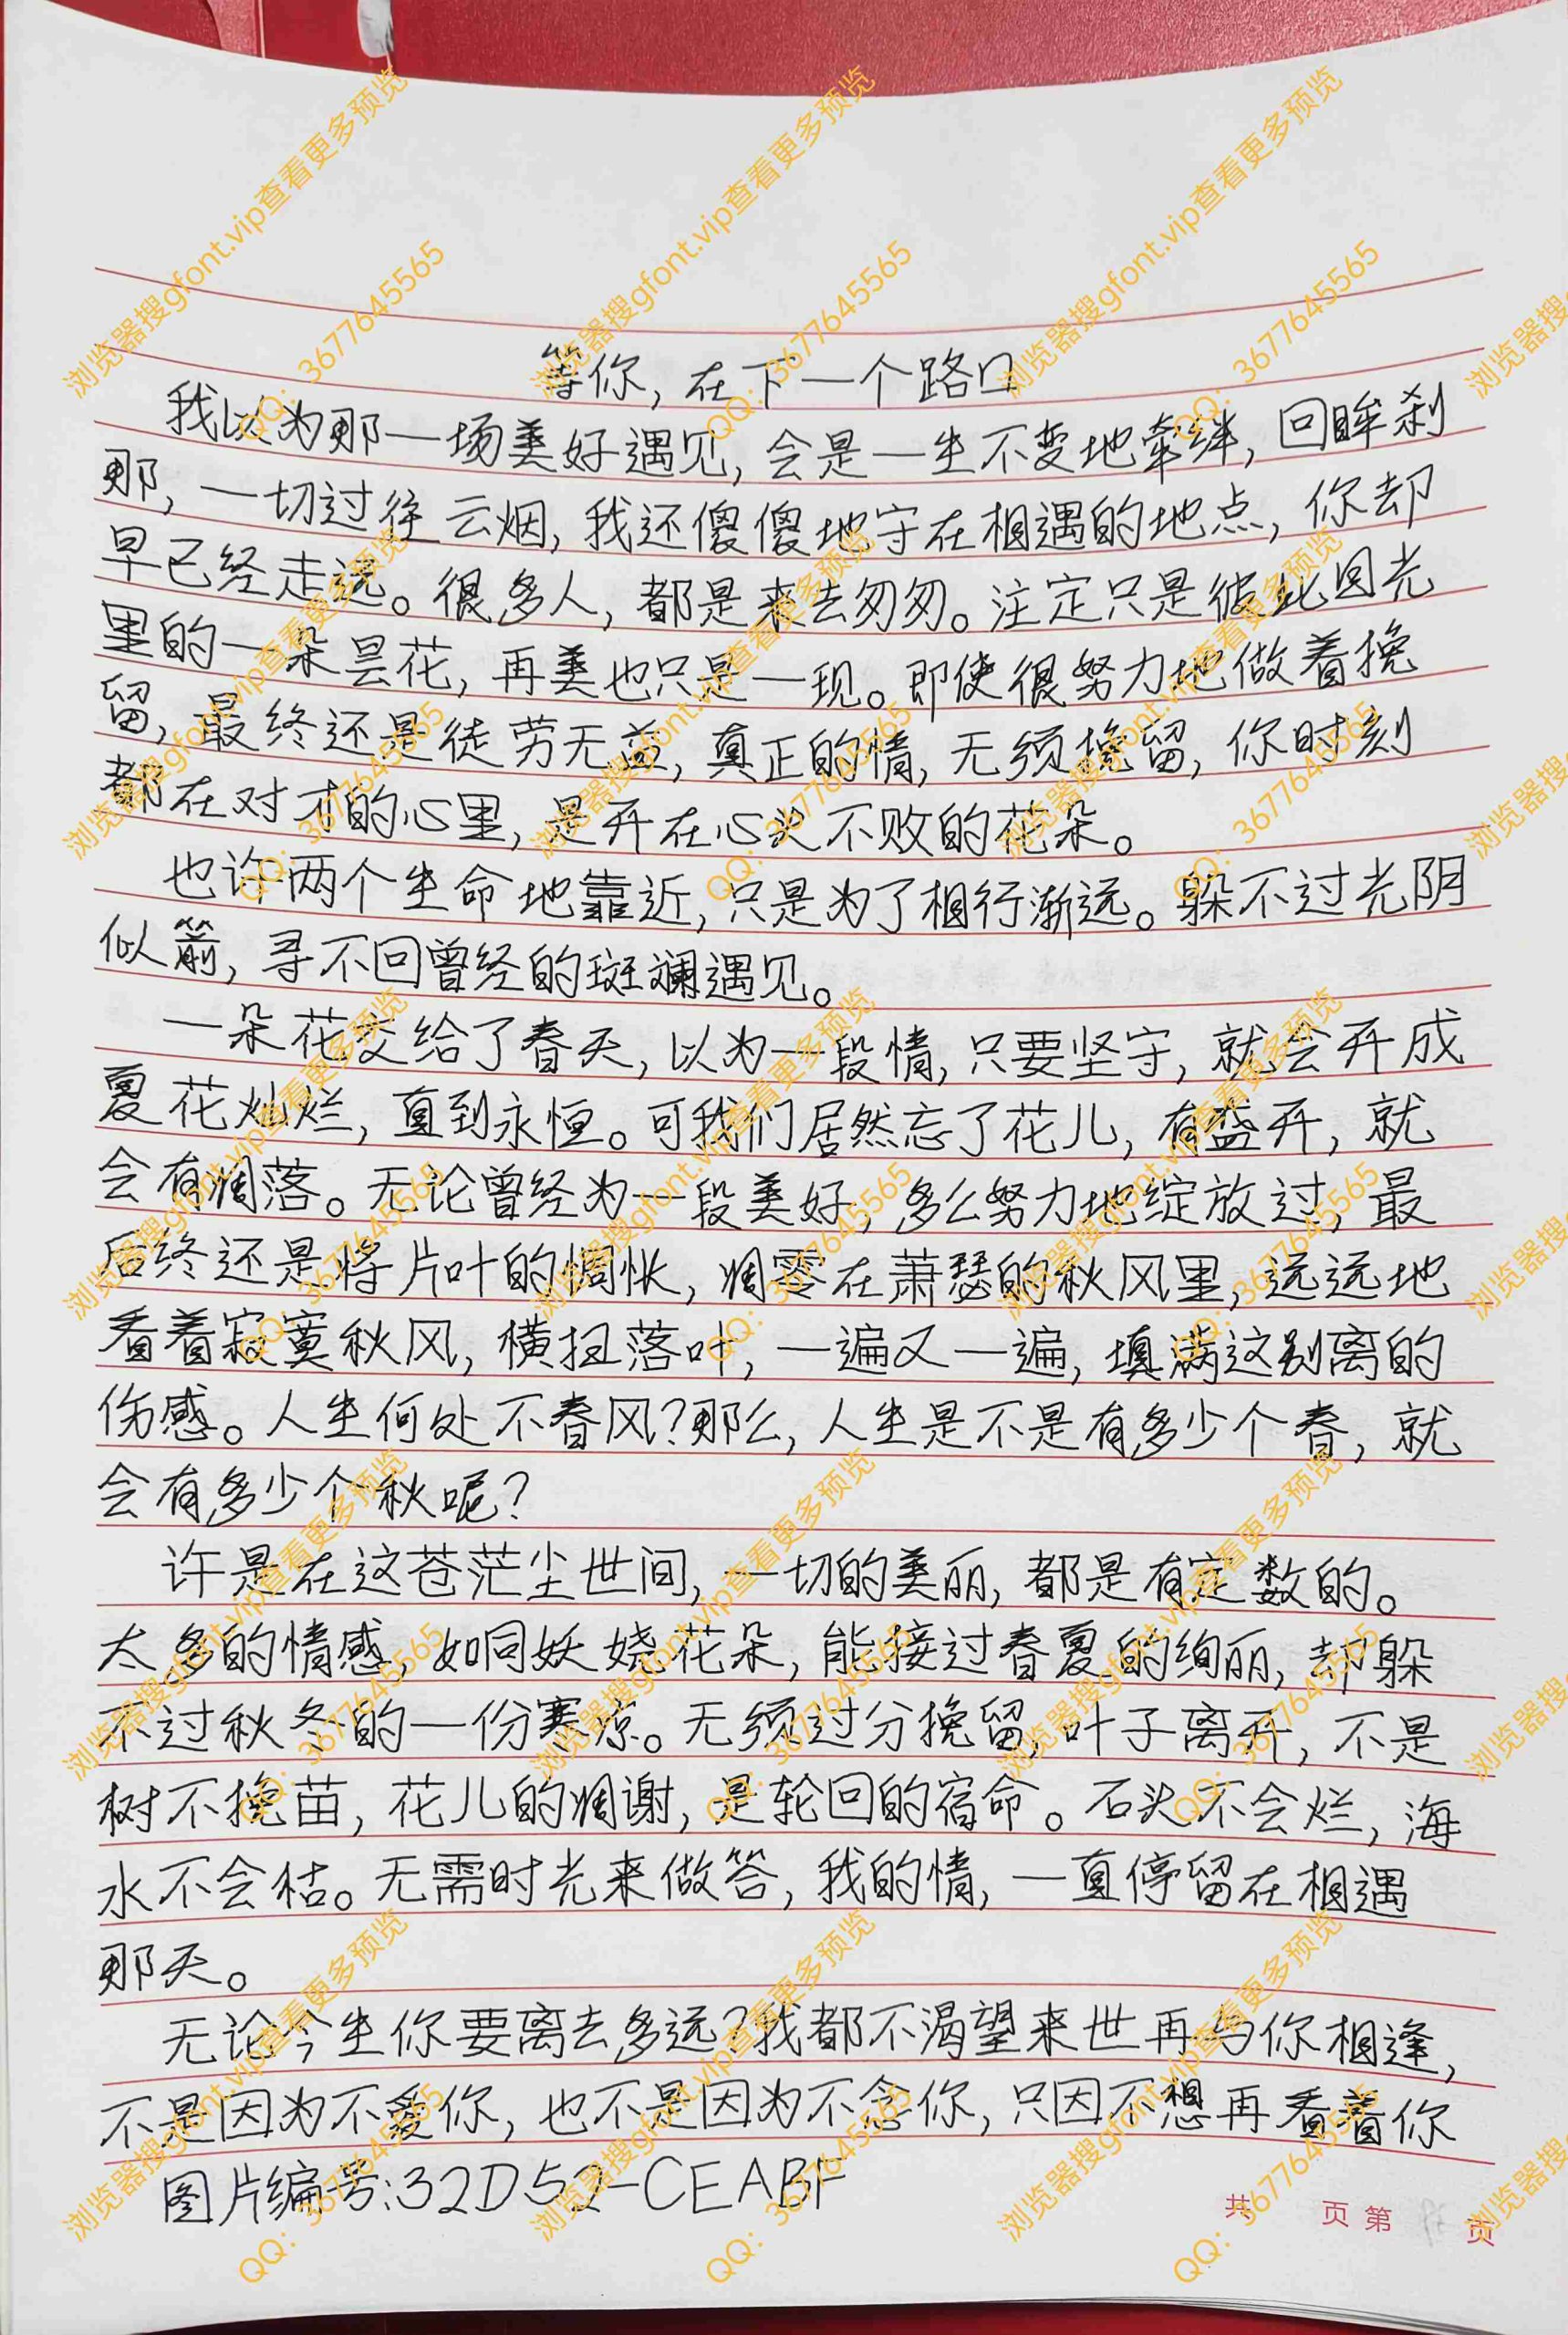 等你,在下一个路口
我以为那一场美好遇见,会是一生不变地牵绊,回眸刹
那,一切过往云烟,我还傻傻地守在相遇的地点,你却
早已经走远。很多人,都是来去匆匆。注定只是彼此目光
里的一朵昙花,再美也只是一现。即使很努力地做着挽
留,最终还是徒劳无益,真正的情,无须挽留,你时刻
都在对才的心里,是开在心头不败的花朵。
也许两个生命地靠近,只是为了相行渐远。躲不过光阴
似箭,寻不回曾经的斑斓遇见。
一朵花交给了春天,以为一段情,只要坚守,就会开成
夏花灿烂,直到永恒。可我们居然忘了花儿,有盛开,就
会有凋落。无论曾经为一段美好,多么努力地绽放过,最
后终还是将片叶的惆怅,凋零在萧瑟的秋风里,远远地
看着寂寞秋风,横扫落叶,一遍又一遍,填满这别离的
伤感。人生何处不春风?那么,人生是不是有多少个春,就
会有多少个秋呢?
许是在这苍茫尘世间,一切的美丽,都是有定数的。
太多的情感,如同妖娆花朵,能接过春夏的绚丽,却躲
不过秋冬的一份寒凉。无须过分挽留,叶子离开,不是
树不挽苗,花儿的凋谢,是轮回的宿命。石头不会烂,海
水不会枯。无需时光来做答,我的情,一直停留在相遇
那天。
无论今生你要离去多远?我都不渴望来世再与你相逢,
不是因为不爱你,也不是因为不念你,只因不想再看着你
图片编号:32D52-CEABF
共 页 第 页
浏览器搜gfont.vip查看更多预览
QQ：3677645565